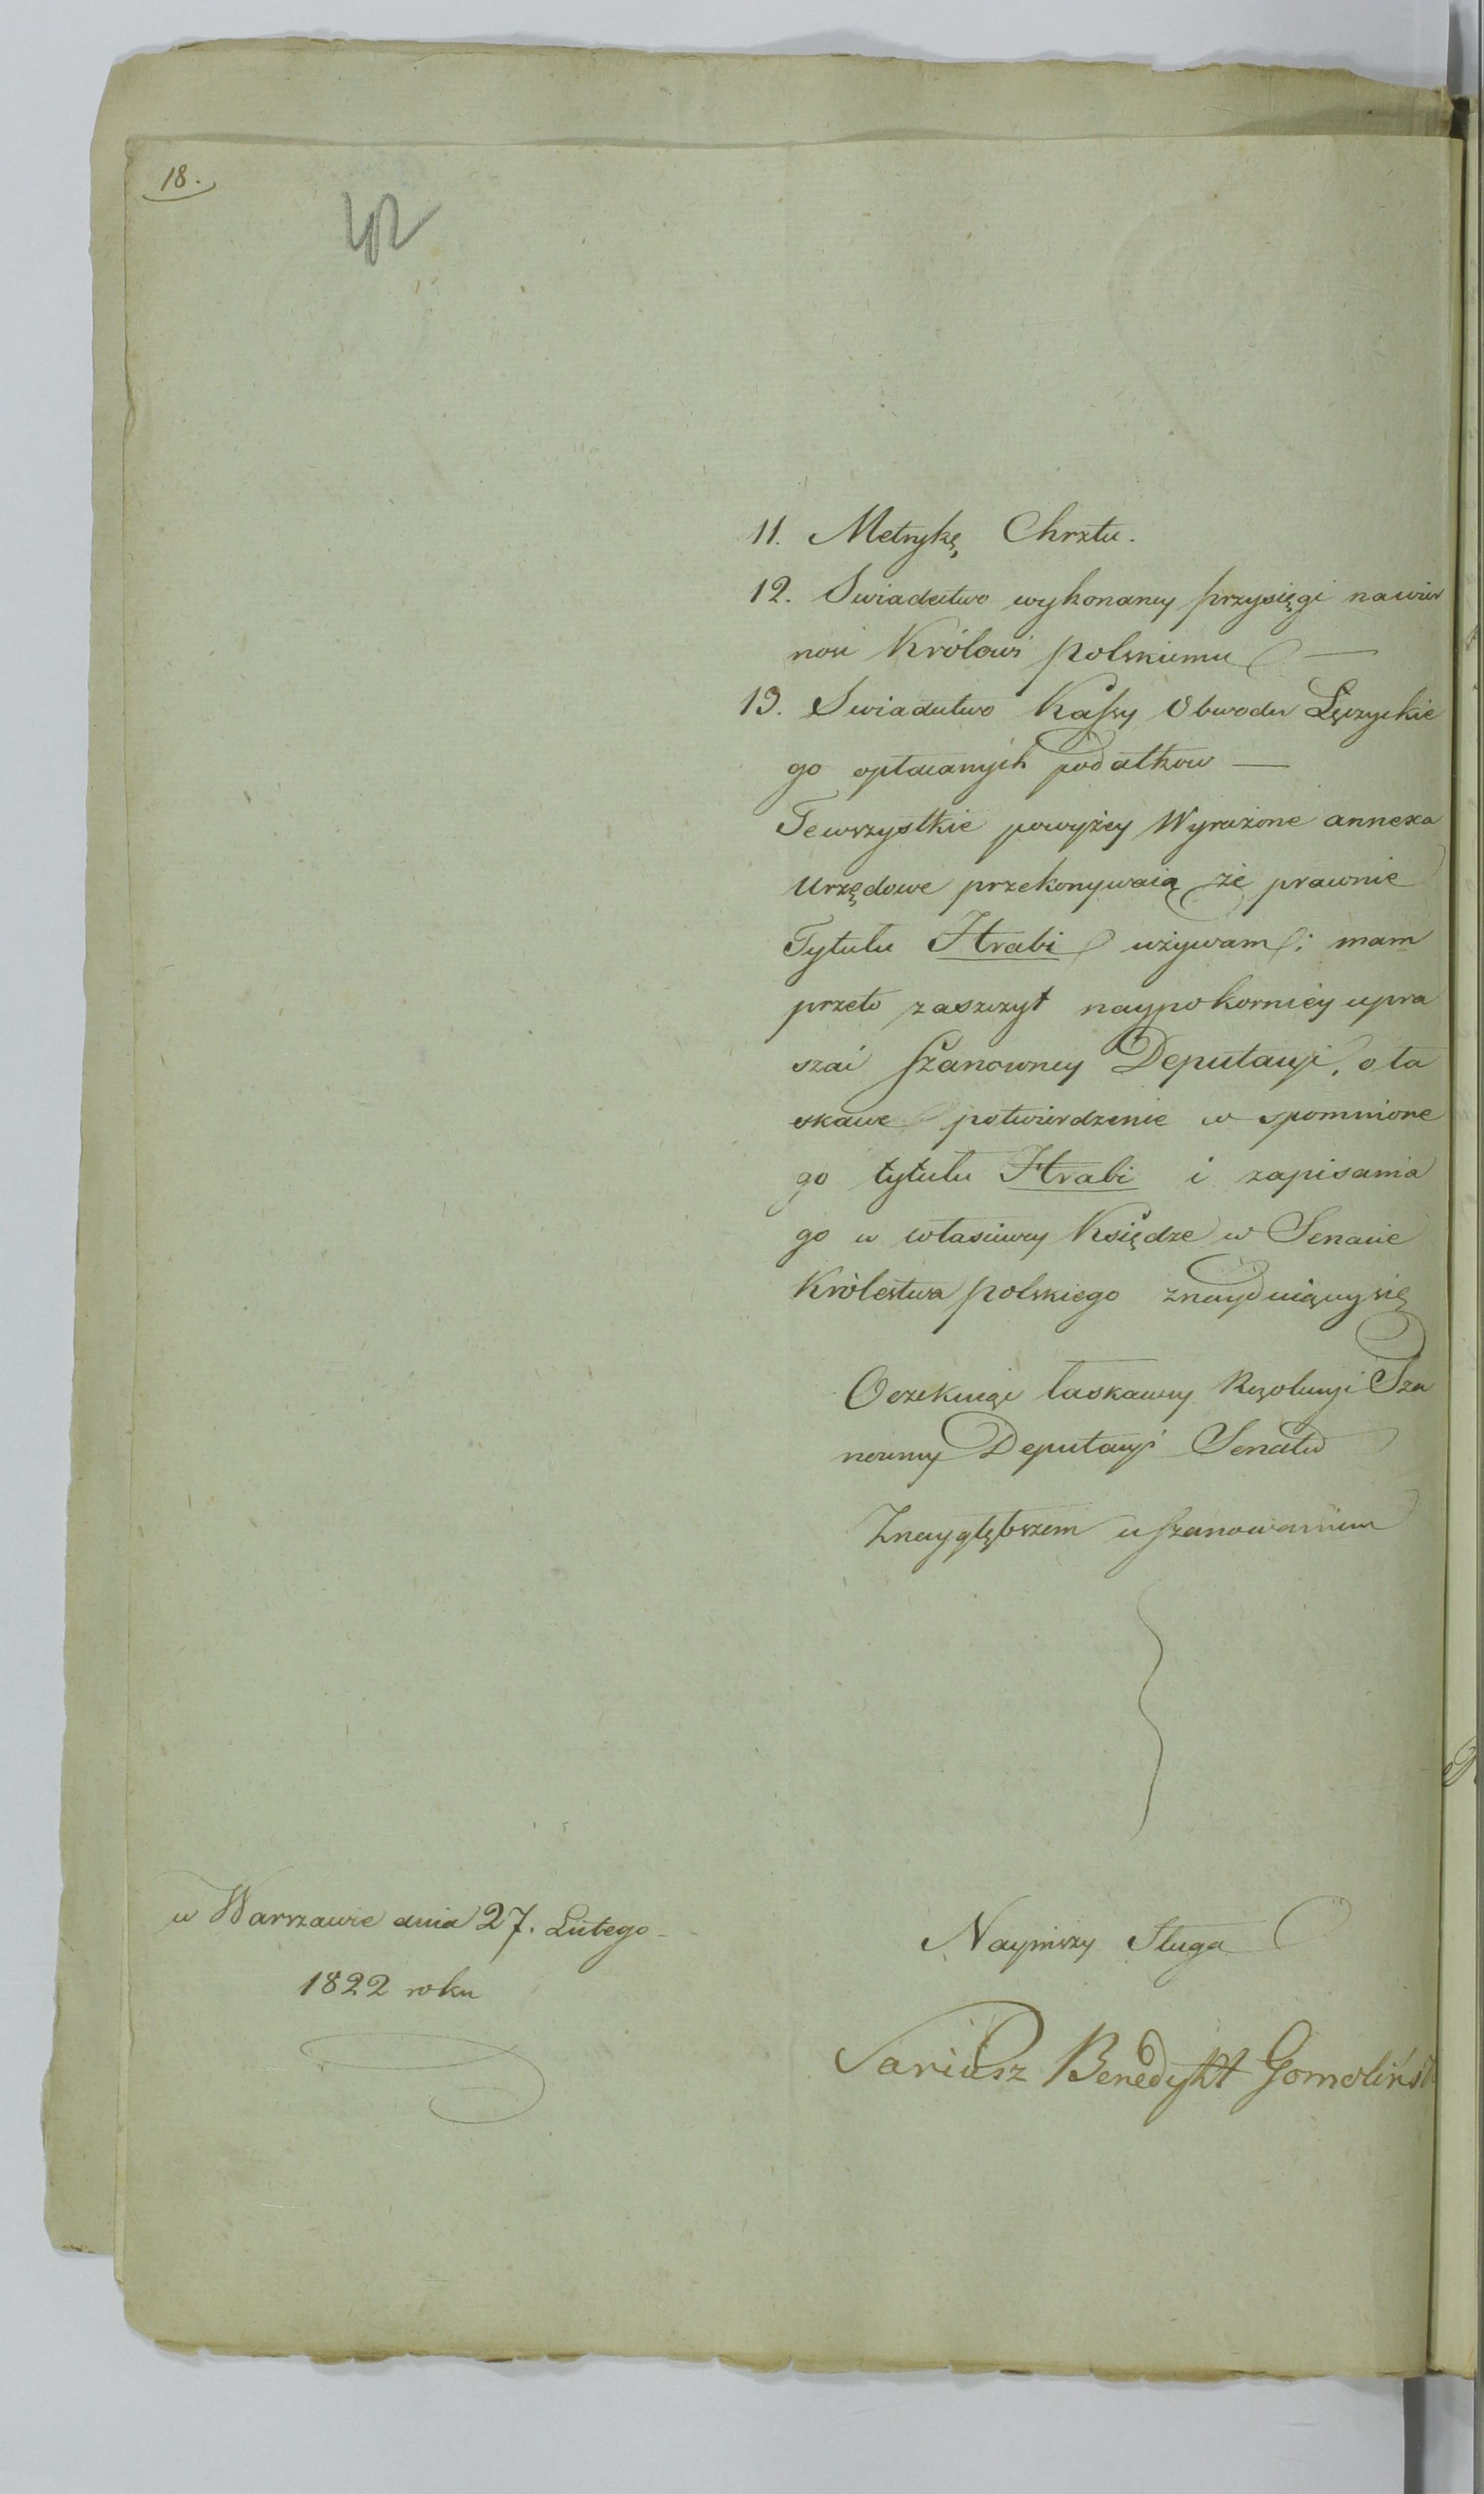 18.
11. Metrykę Chrztu.
12. Swiadectwo wykonaney przysięgi na wier
nosc Królowi polskiemu —
13. Swiadectwo Kassy Obwodu Łęczyckie
go opłaconych podatkow —
Te wszystkie powyżey Wyrażone annexa
Urzędowe przekonywaią że prawnie
Tytułu Hrabi używam; mam
przeto zaszczyt naypokorniey upra
szać szanowney Deputacyi, o ła
skawe potwierdzenie wspomnione
go tytułu Hrabi i zapisania
go w własciwey Księdze w Senacie
Królestwa polskiego znayduiącey się
Oczekuię łaskawey Rezolucyi Sza
nowney Deputacyi Senatu
Z naygłębszem uszanowaniem
w Warszawie dnia 27. Lutego
1822 roku
Nayniższy Sługa
Sariusz Benedykt Gomolińsk